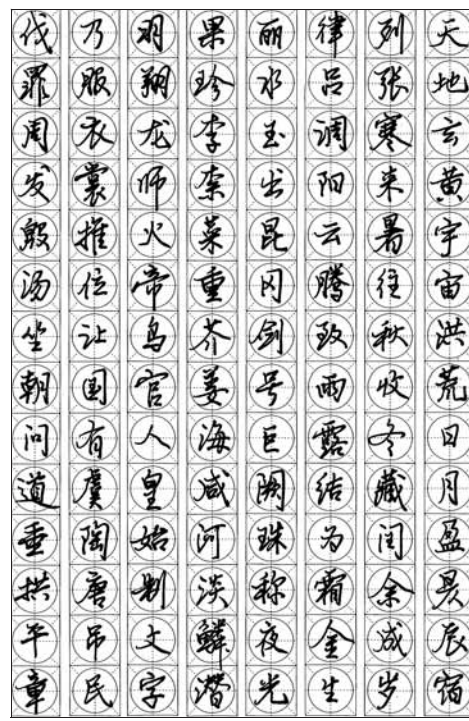 天地玄黄宇宙洪荒日月盈昃辰宿
列张寒来暑往秋收冬藏闰余成岁
律吕调阳云腾致雨露结为霜金生
丽水玉出昆冈剑号巨阙珠称夜光
果珍李柰菜重芥姜海咸河淡鳞潜
羽翔龙师火帝鸟官人皇始制文字
乃服衣裳推位让国有虞陶唐吊民
伐罪周发殷汤坐朝问道垂拱平章